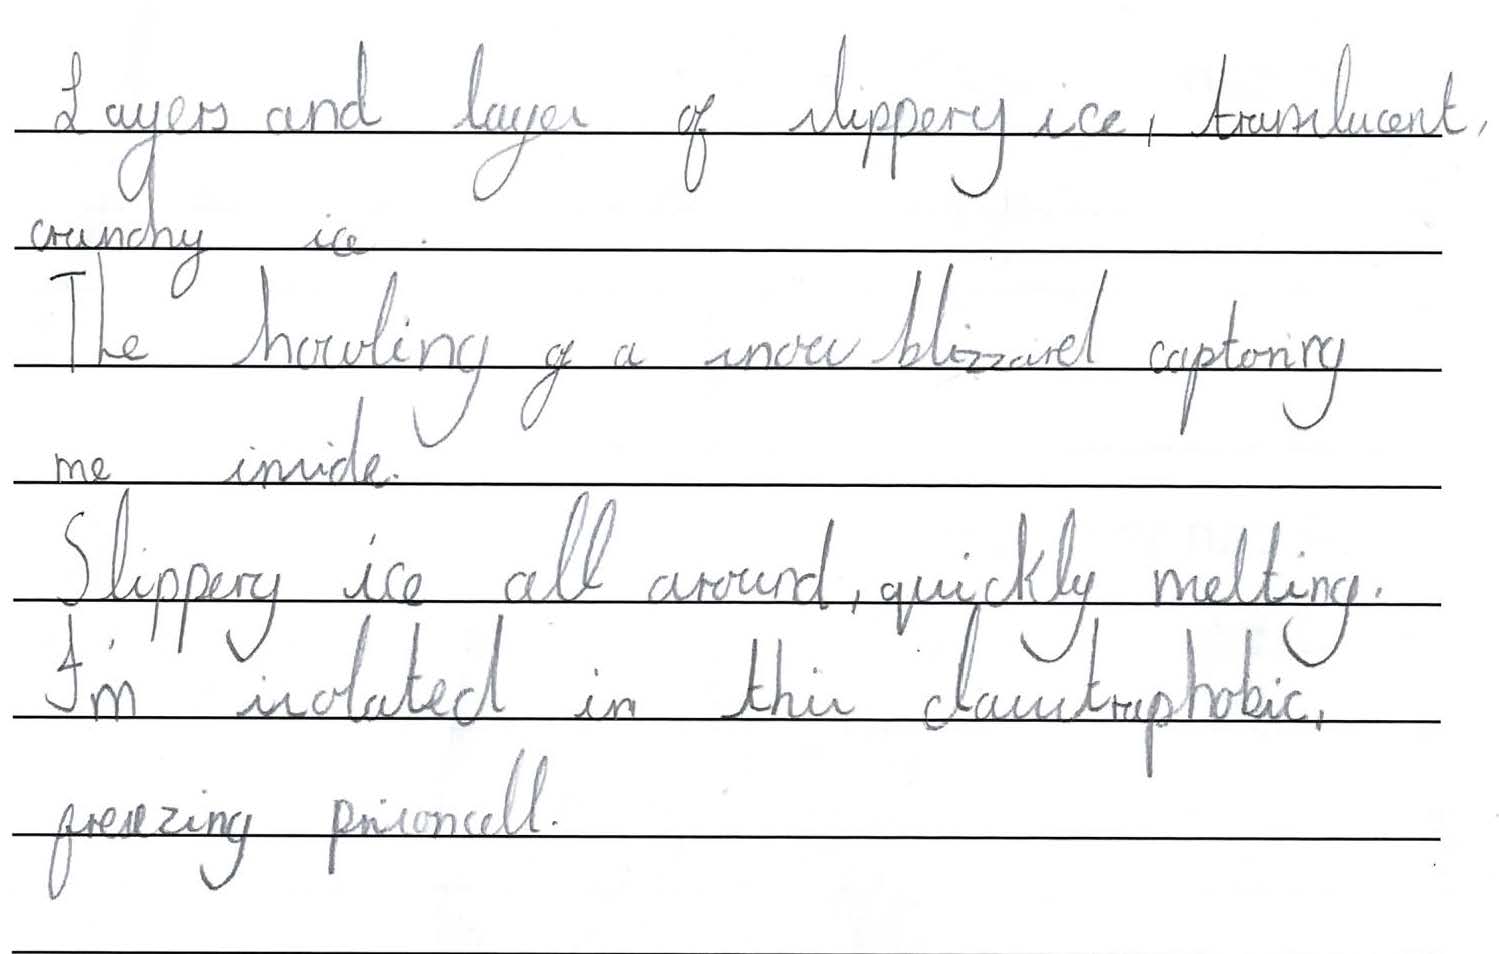 Layers and layer of slippery ice, translucent,
crunchy ice.
The howling of a snow blizzard captoring
me inside.
Slippery ice all around, quickly melting.
I'm isolated in this claustraphobic,
freezing prisoncell.